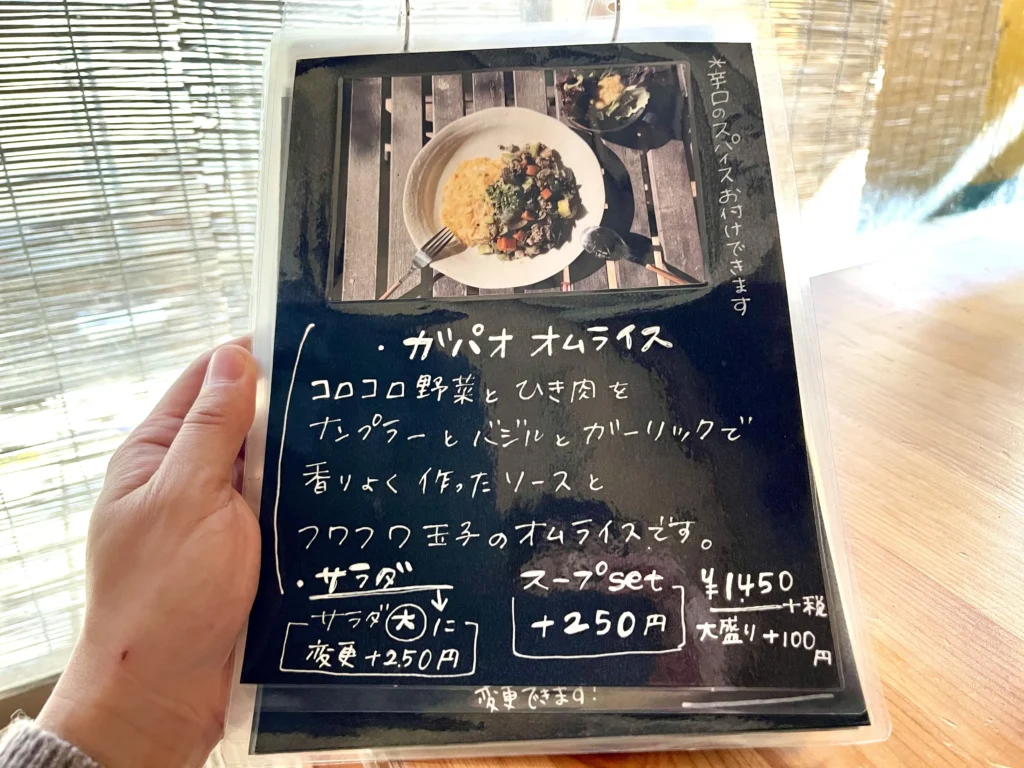 *辛口のスパイスお付けできます
・ガパオ オムライス
コロコロ野菜とひき肉を
ナンプラーとバジルとガーリックで
香りよく作ったソースと
フワフワ玉子のオムライスです。
・サラダ
↓
サラダ大に
変更+250円
スープset
+250円
¥1450
+税
大盛り+100円
変更できます!